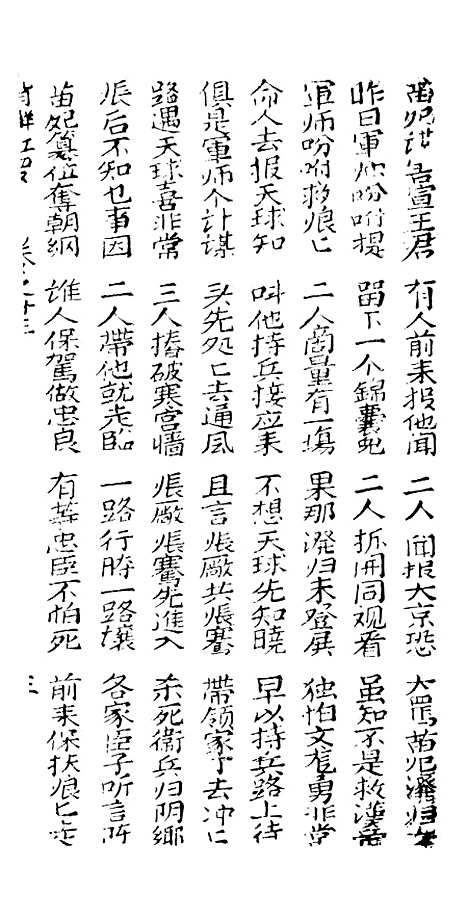 苗妃 言宣王君 有人前来报他闻 二人闻报大京恐 大骂苗妃潑妇
昨日軍师吩咐提 畄下一个錦囊 二人拆開同观看 虽知不是救漢帝
軍师吩咐救娘匕 二人商量有一塲 果那潑妇未登展 独怕文龙勇非常
命人去报天球知 呌他持兵接应来 不想天球先知曉 早以持兵路上待
俱是軍师个计謀 头先处匕去通风 且言張厰共張騫 帶领家丁去冲匕
路遇天球喜非常 三人摏破寒宫墻 張厰張騫先進入 杀死衛兵归阴鄉
張后不知乜事因 二人帶他就走臨 一路行時一路 各家臣子听言
苗妃篡位奪朝綱 谁人保駕做忠良 有等忠臣不怕死 前来保扶娘匕走
卷之十三 三